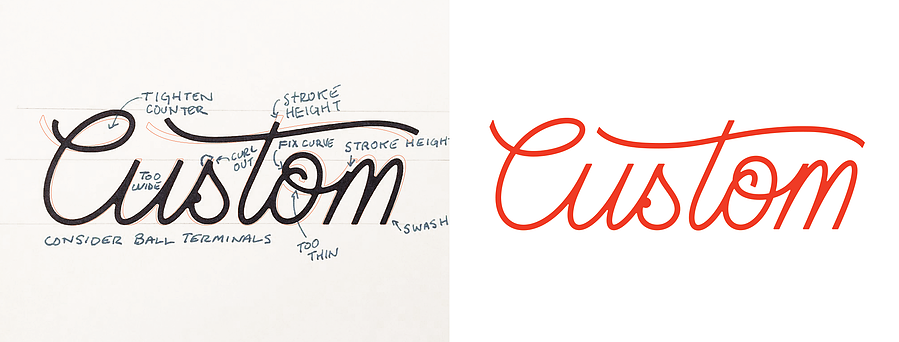 TIGHTEN
COUNTER
STROKE
HEIGHT
FIX CURVE
STROKE HEIGHT
CURL
OUT
TOO
WIDE
Custom
SWASH
CONSIDER BALL TERMINALS
TOO
THIN
Custom